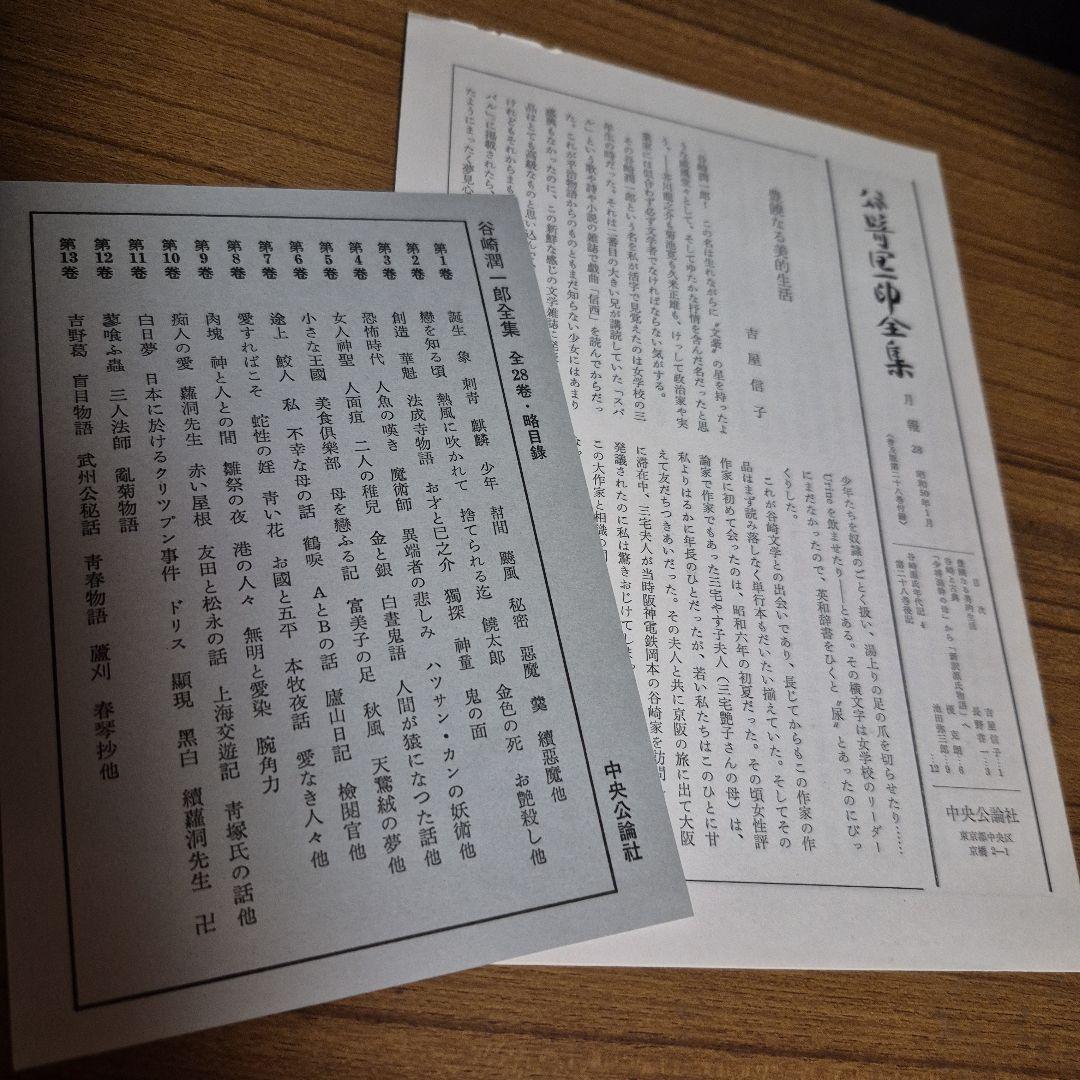 谷崎潤一郎全集 全28巻・略目録
中央公論社
第1巻 誕生 象 刺靑 麒麟 少年 幇間 飇風 秘密 惡魔 羹 續惡魔他
第2巻 戀を知る頃 熱風に吹かれて 捨てられる迄 饒太郎 金色の死 お艶殺し他
第3巻 創造 華魁 法成寺物語 お才と巳之介 獨探 神童 鬼の面
第4巻 恐怖時代 人魚の嘆き 魔術師 異端者の悲しみ ハツサン・カンの妖術他
第5巻 女人神聖 人面疽 二人の稚兒 金と銀 白晝鬼語 人間が猿になつた話他
第6巻 小さな王國 美食倶樂部 母を戀ふる記 富美子の足 秋風 天鵞絨の夢他
第7巻 途上 鮫人 私 不幸な母の話 鶴唳 AとBの話 廬山日記 檢閲官他
第8巻 愛すればこそ 蛇性の婬 靑い花 お國と五平 本牧夜話 愛なき人々他
第9巻 肉塊 神と人との間 雛祭の夜 港の人々 無明と愛染 腕角力
第10巻 痴人の愛 蘿洞先生 赤い屋根 友田と松永の話 上海交遊記 靑塚氏の話他
第11巻 白日夢 日本に於けるクリツプン事件 ドリス 顯現 黑白 續蘿洞先生 卍
第12巻 蓼喰ふ蟲 三人法師 亂菊物語
第13巻 吉野葛 盲目物語 武州公秘話 靑春物語 蘆刈 春琴抄他
谷崎潤一郎全集 月報 28 昭和50年1月
(普及版第二十八巻付録)
目次
豊饒なる美的生活 吉屋信子…1
谷崎と古典 長野甞一…3
池田弥三郎…9
谷崎源氏年代記 4
第二十八巻後記 12
中央公論社
東京都中央区
京橋 2—1
豊饒なる美的生活
吉屋信子
谷崎潤一郎! この名は生れながらに〝文豪〟の星を持ったよ
うな威風堂々として、そしてゆたかな抒情を含んだ名だったと思
う。——芥川龍之介も菊池寛も久米正雄も、けっして政治家や実
業家には似合わず必ず文学者でなければならない気がする。
その谷崎潤一郎という名を私が活字で見覚えたのは女学校の三
年生の時だった。それは二番目の大きい兄が購読していた「スバ
ル」という歌や詩や小説の雑誌で戯曲「信西」を読んでからだっ
た。これが平治物語からのものともまだ知らない少女にはあまり
感興もなかったのに、この新鮮な感じの文学雑誌に
品はとても高級なものと思い込んで
けれどもそれからまも
バル」に掲載されたら、
たようにまったく夢見心
少年たちを奴隷のごとく扱い、湯上りの足の爪を切らせたり……
Urine を飲ませたり——とある。その横文字は女学校のリーダー
にまだなかったので、英和辞書をひくと〝尿〟とあったのにびっ
くりした。
これが谷崎文学との出会いであり、長じてからもこの作家の作
品はまず読み落しなく単行本もだいたい揃えていた。そしてその
作家に初めて会ったのは、昭和六年の初夏だった。その頃女性評
論家で作家でもあった三宅やす子夫人(三宅艶子さんの母)は、
私よりはるかに年長のひとだったが、若い私たちはこのひとに甘
えて友だちつきあいだった。その夫人と共に京阪の旅に出て大阪
に滞在中、三宅夫人が当時阪神電鉄岡本の谷崎家を訪問
発議されたのに私は驚きおじけてしま
この大作家と相識の間